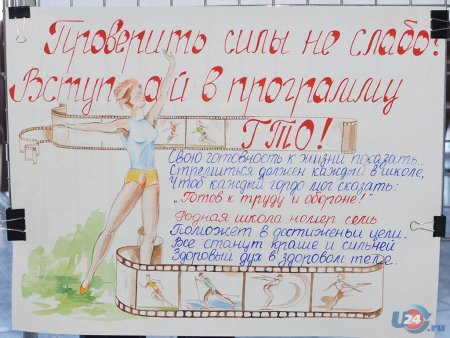 Проверить силы не слабо?
Вступай в программу
ГТО!
Свою готовность к жизни показать...
Стремиться должен каждый в школе,
Чтоб каждый гордо мог сказать:
„Готов к труду и обороне!"
Родная школа номер семь
Поможет в достиженьи цели.
Все станут краше и сильней
Здоровый дух в здоровом теле.
U24.ru